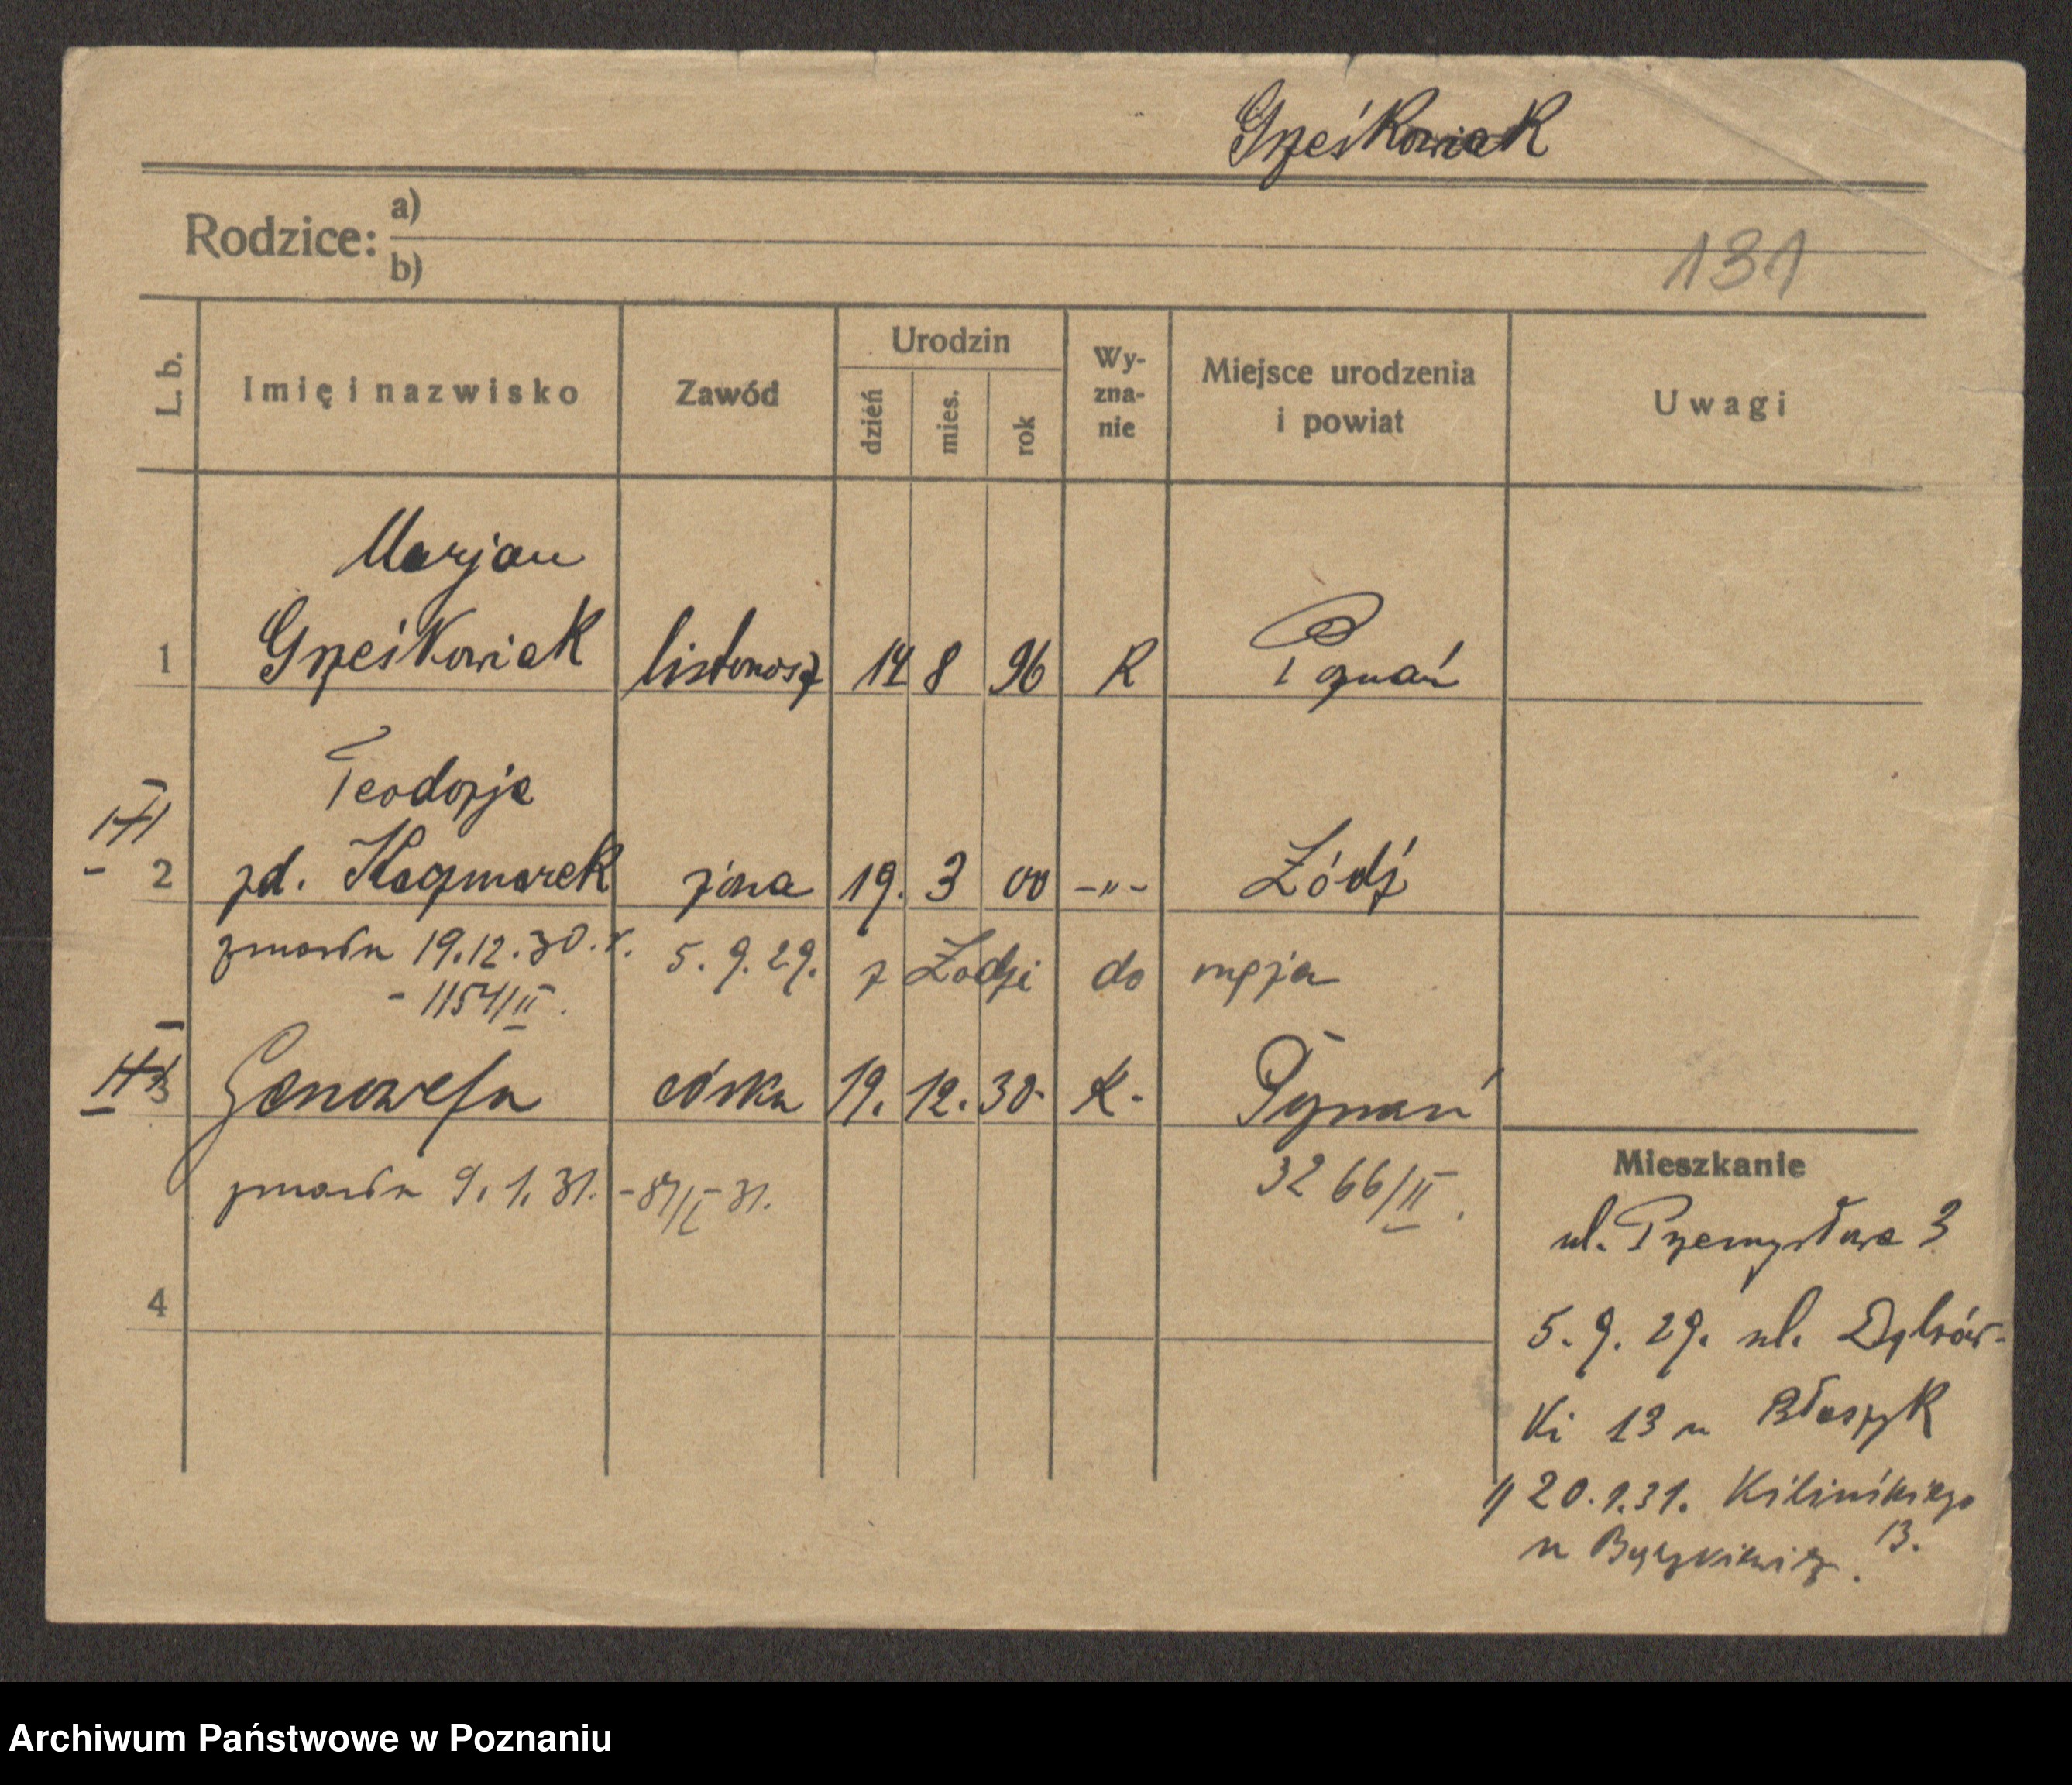 Grześkowiak
Rodzice: a)
b)
131
L. b.
Imię i nazwisko
Zawód
Urodzin
dzień
mies.
rok
Wy-
zna-
nie
Miejsce urodzenia
i powiat
Uwagi
Marjan
1 Grześkowiak listonosz 14 8 96 R Poznań
Teodozja
2 zd. Kaczmarek żona 19. 3 00 -"- Łódź
zmarła 19.12.30.r. 5.9.29. z Łodzi do męża
- 1154/II.
3 Genowefa córka 19. 12. 30. K. Poznań
zmarła 9.1.31. - 87/I 31. 3266/II.
4
Mieszkanie
ul. Przemysława 3
5.9.29. ul. Dąbrów-
ki 13 u Błaszyk
20.1.31. Kilińskiego
13.
Archiwum Państwowe w Poznaniu